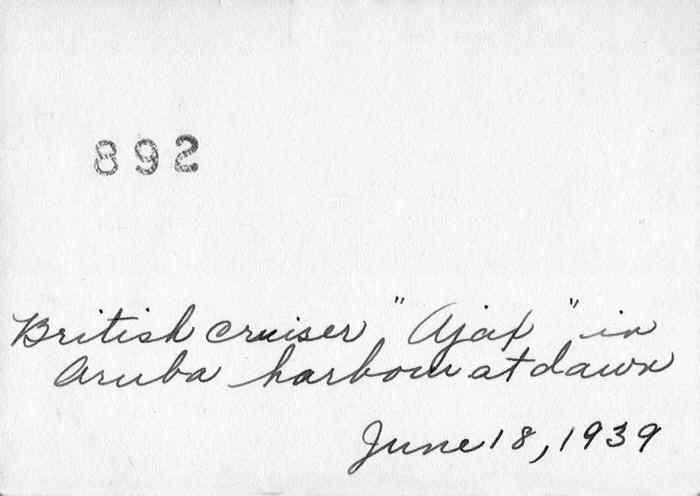 892
British cruiser "Ajax" in
Aruba harbour at dawn
June 18, 1939